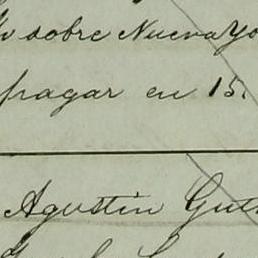 sobre Nueva Yo
pagar en 15.
Agustin Gut